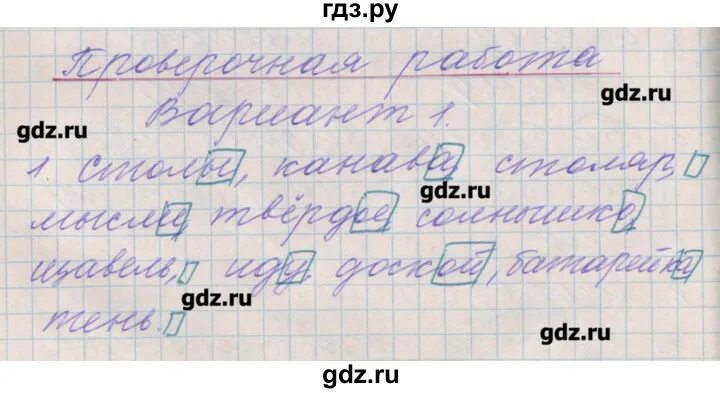 гдз.ру
Проверочная работа
gdz.ru
Вариант 1.
gdz.ru
1. столы, канава столяр,
gdz.ru
мысли, твёрдое солнышко
щавель, иду, доской, батарейка
gdz.ru
тень.
gdz.ru
gdz.ru